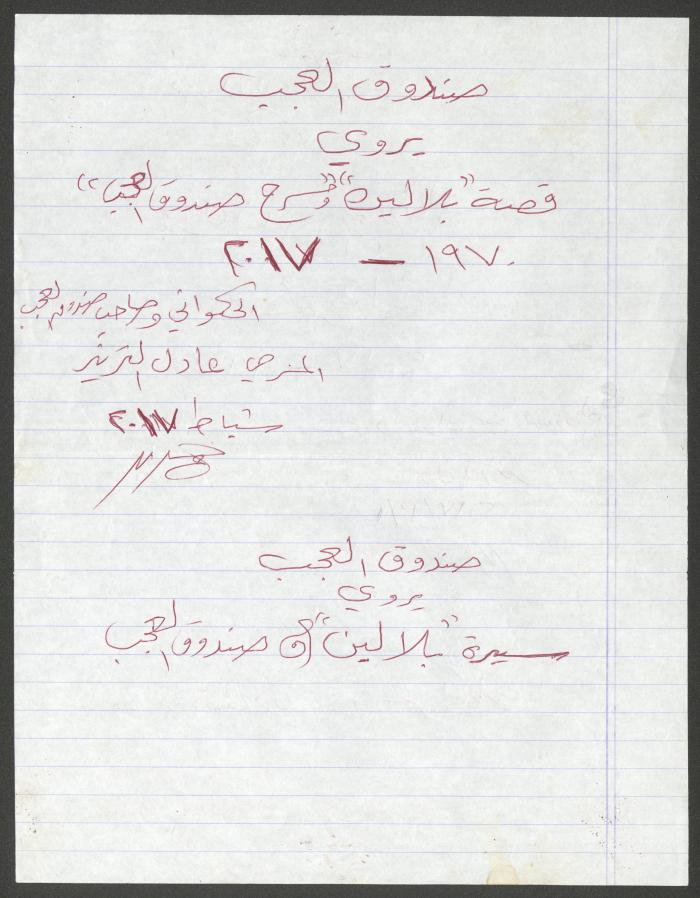 صندوق العجب
يروي
قصة "بلالين" و"مسرح صندوق العجب"
١٩٧٠ — ٢٠١٧
الحكواتي وصاحب صندوق العجب
المسرحي عادل الترتير
شباط ٢٠١٧
صندوق العجب
يروي
سيرة "بلالين" صندوق العجب